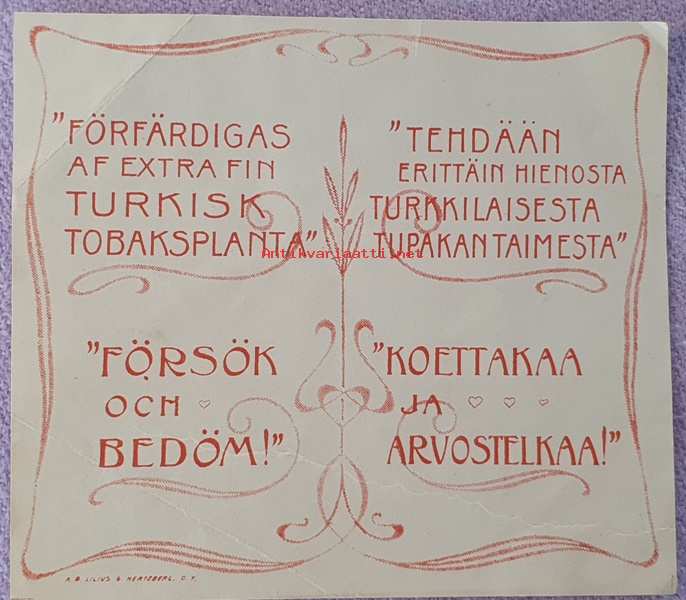 "FÖRFÄRDIGAS
AF EXTRA FIN
TURKISK
TOBAKSPLANTA"
"TEHDÄÄN
ERITTÄIN HIENOSTA
TURKKILAISESTA
TUPAKAN TAIMESTA"
Antikvariaatti.net
"FÖRSÖK
OCH
BEDÖM!"
"KOETTAKAA
JA
ARVOSTELKAA!"
A. B. LILIUS & HERTZBERG. O. Y.